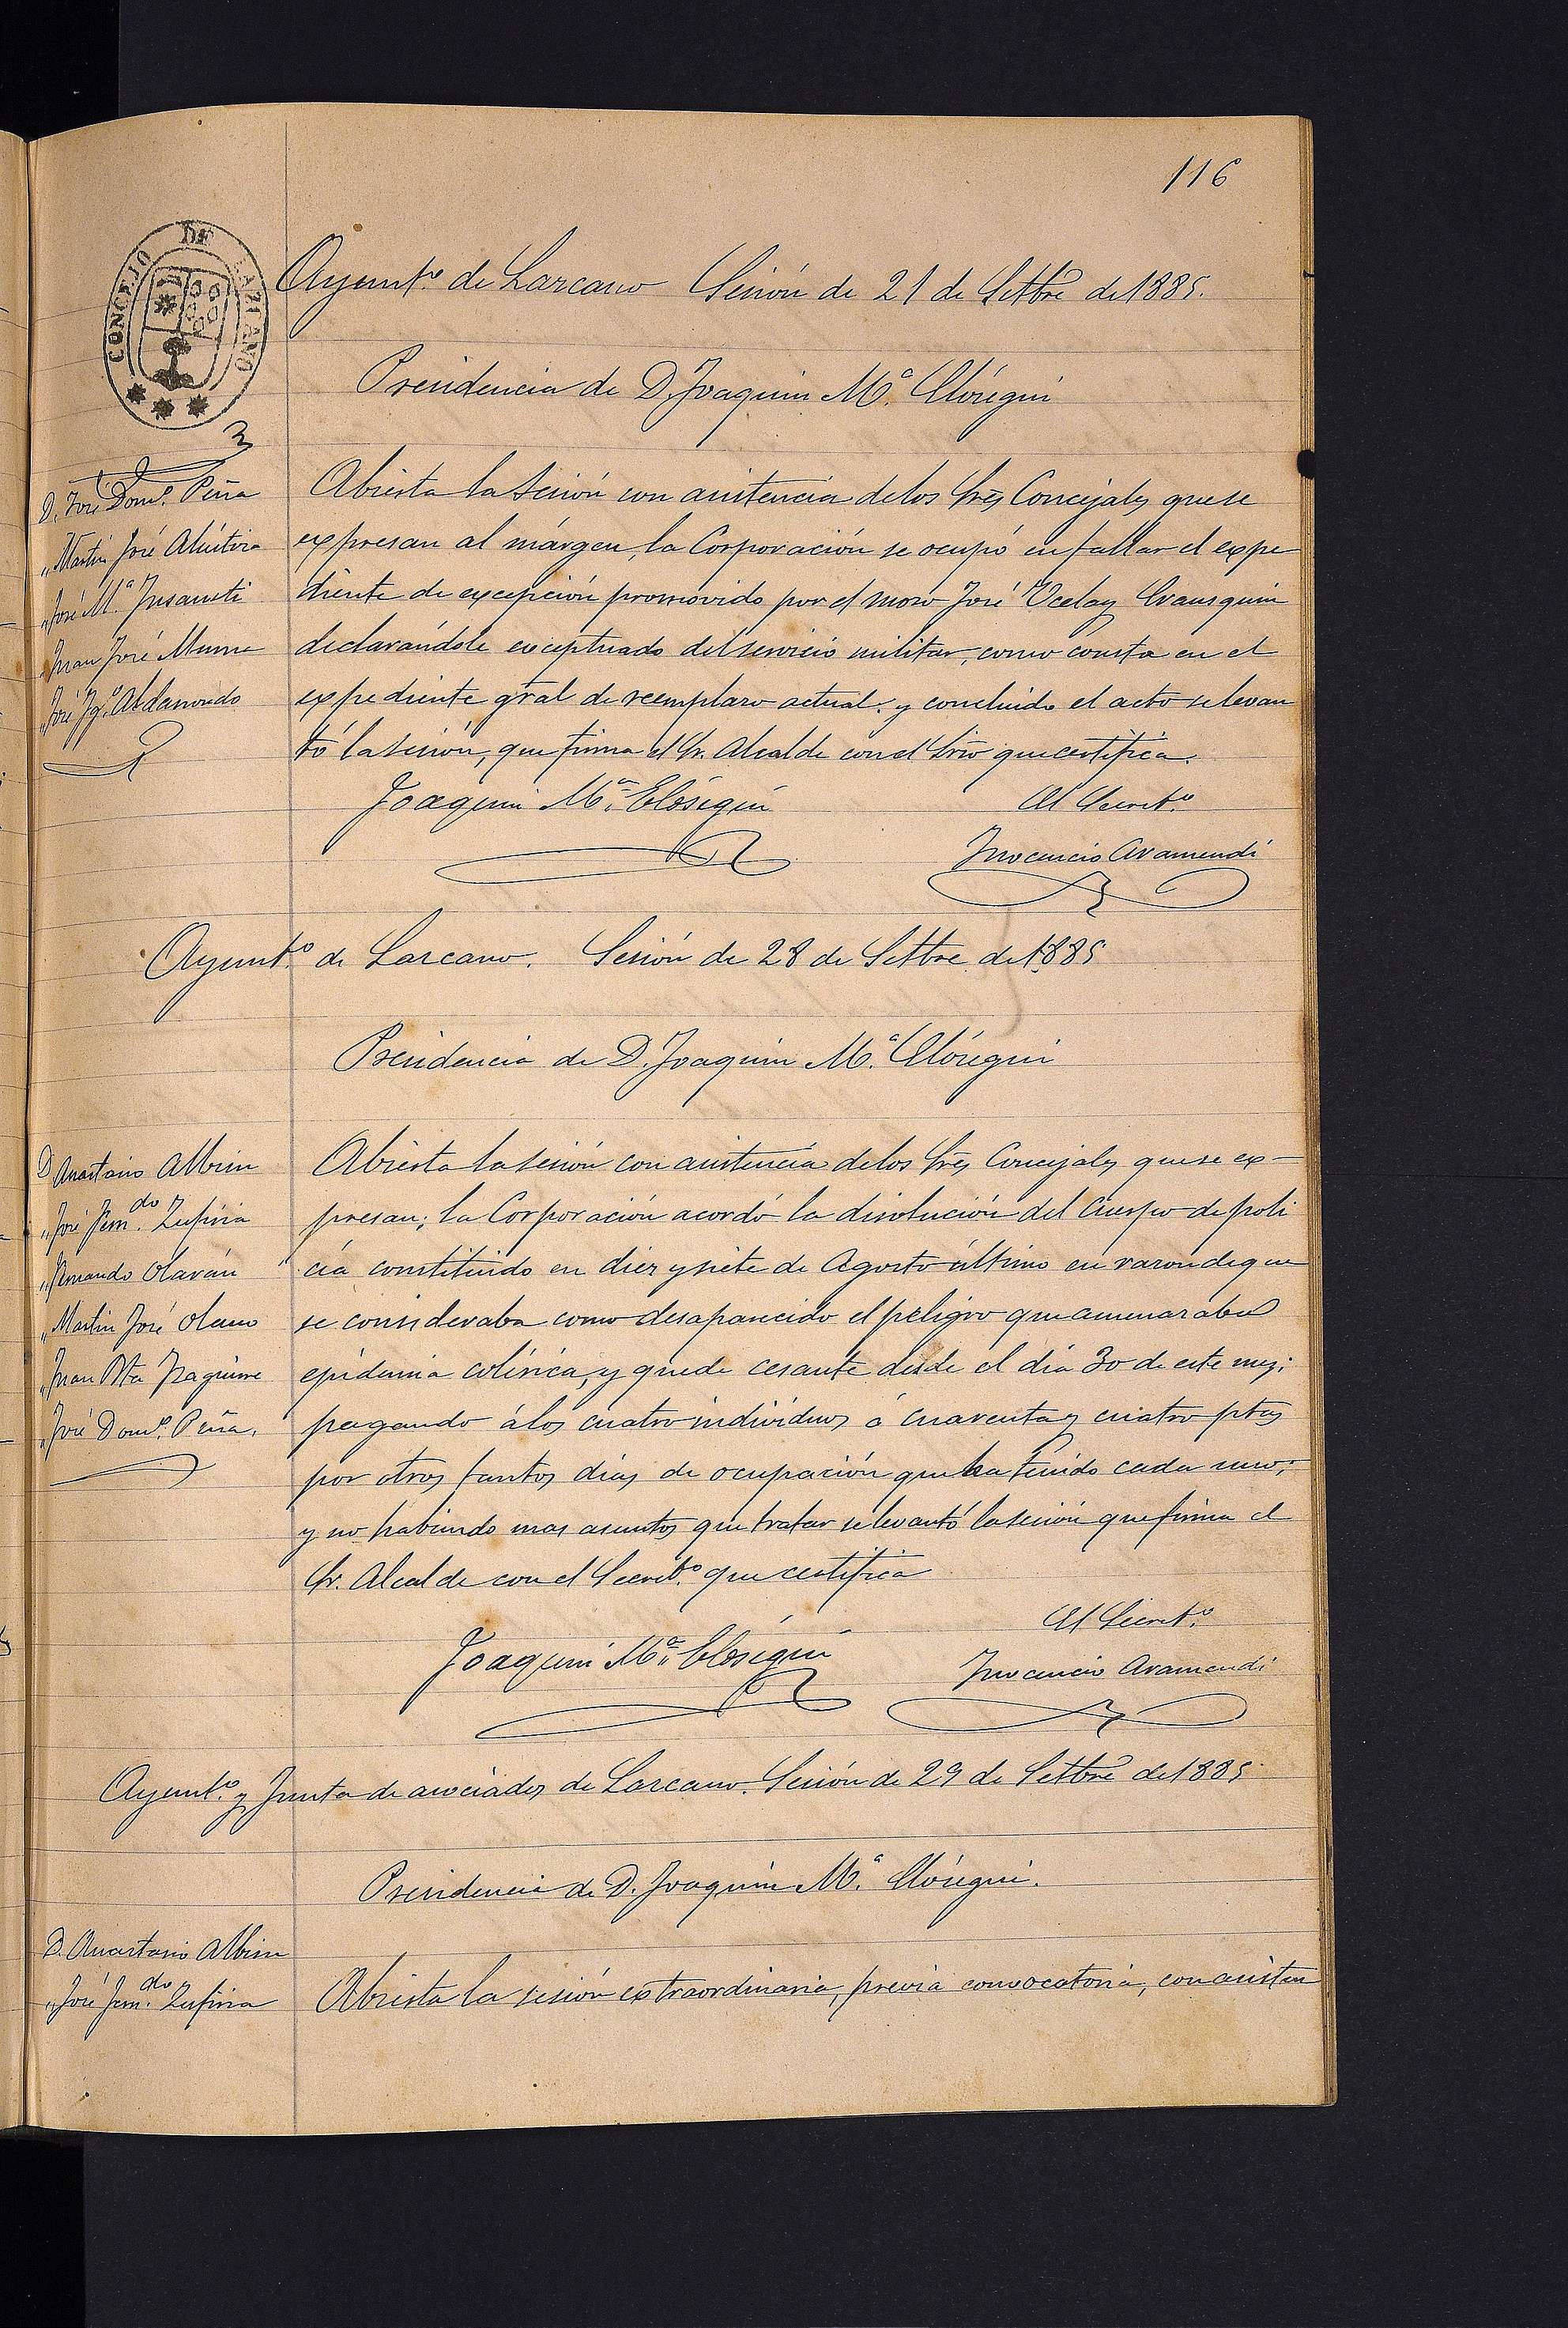 116
CONCEJO DE LAZCANO
Ayunt.º de Lazcano Sesión de 21 de Settbre de 1885.
Presidencia de D. Joaquin M.ª Elósegui
D. José Dom.º Peña
„ Martin José
„ José M.ª Insausti
Juan José Munua
„ José Ig.º Aldasoro
Abierta la sesión con asistencia de los Sres Concejales que se
expresan al márgen, la Corporación se ocupó en fallar el expe
diente de excepción promovido por el mozo José Ucelay Erausquin
declarándole exceptuado del servicio militar, como consta en el
expediente gral de reemplazo actual. y concluido el acto se levan
tó la sesión, que firma el Sr. Alcalde con el Srio que certifica.
Joaquin M.ª Elósegui
El Secret.º
Inocencio Aramendi
Ayunt.º de Lazcano. Sesión de 28 de Settbre de 1885
Presidencia de D. Joaquin M.ª Elósegui
D. Anastasio Albisu
„ José Fern.do Zufiria
„ Fernando Olarán
„ Martin José Olano
„ Juan Bta Izaguirre
„ José Dom.º Peña.
Abierta la sesión con asistencia de los Sres Concejales que se ex-
presan; la Corporación acordó la disolución del Cuerpo de poli
cía constituido en diez y siete de Agosto último en razon de que
se consideraba como desaparecido el peligro que amenazaba
epidemia colérica, y quede cesante desde el día 30 de este mes;
pagando á los cuatro individuos á cuarenta y cuatro ptas
por otros tantos días de ocupación que ha tenido cada uno;
y no habiendo mas asuntos que tratar se levantó la sesión que firma el
Sr. Alcalde con el Secret.º que certifica
Joaquin M.ª Elósegui
El Secret.º
Inocencio Aramendi
Ayunt.º y Junta de asociados de Lazcano. Sesión de 29 de Settbre de 1885
Presidencia de D. Joaquin M.ª Elósegui.
D. Anastasio Albisu
„ José Fern.do Zufiria
Abierta la sesión extraordinaria, previa convocatoria, con asisten